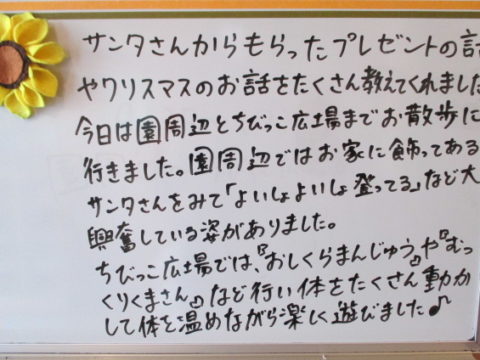 サンタさんからもらったプレゼントの話
やクリスマスのお話をたくさん教えてくれました
今日は園周辺とちびっこ広場までお散歩に
行きました。園周辺ではお家に飾ってある
サンタさんをみて「よいしょよいしょ登ってる」など大
興奮している姿がありました。
ちびっこ広場では、『おしくらまんじゅう』や『むっ
くりくまさん』など行い体をたくさん動か
して体を温めながら楽しく遊びました♪